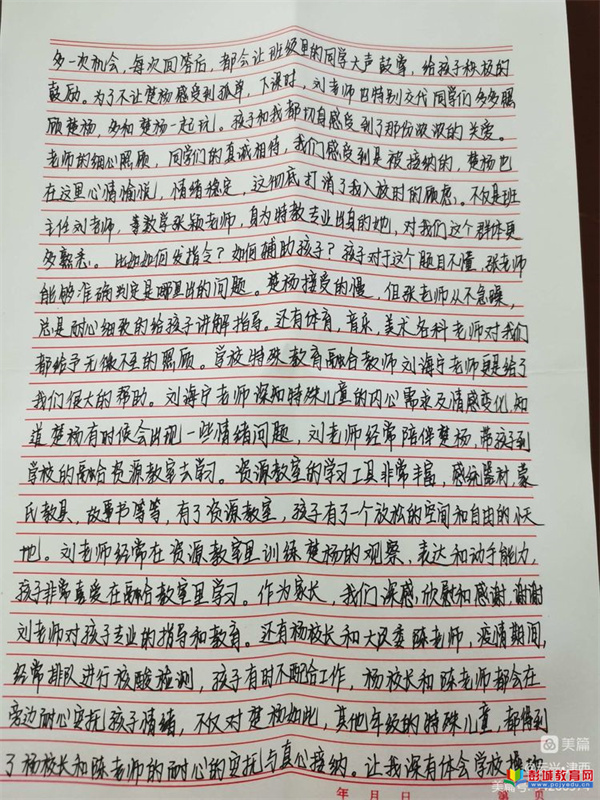 多一次机会，每次回答后，都会让班级里的同学大声鼓掌，给孩子积极的
鼓励。为了不让楚杨感受到孤单，下课时，刘老师也特别交代同学们多多照
顾楚杨，多和楚杨一起玩。孩子和我都切身感受到了那份浓浓的关爱。
老师的细心照顾，同学们的真诚相待，我们感受到是被接纳的，楚杨也
在这里心情愉悦，情绪稳定，这彻底打消了我入校时的顾虑。不仅是班
主任刘老师，等数学张颖老师，真为特教专业出身的她，对我们这个群体更
多熟悉。比如如何发指令？如何辅助孩子？孩子对于这个题目不懂，张老师
能够准确判定是哪里出的问题。楚杨接受的慢，但张老师从不急躁，
总是耐心细致的给孩子讲解指导。还有体育，音乐，美术各科老师对我们
都给予无微不至的照顾。学校特殊教育融合教师刘海宁老师更是给了
我们很大的帮助。刘海宁老师深知特殊儿童的内心需求及情感变化，知
道楚杨有时候会出现一些情绪问题，刘老师经常陪伴楚杨，带孩子到
学校的融合资源教室去学习。资源教室的学习工具非常丰富，感统器材，蒙
氏教具，故事书等等，有了资源教室，孩子有了一个放松的空间和自由的小天
地。刘老师经常在资源教室里训练楚杨的观察，表达和动手能力，
孩子非常喜爱在融合教室里学习。作为家长，我们深感欣慰和感谢，谢谢
刘老师对孩子专业的指导和教育。还有杨校长和大队委陈老师，疫情期间，
经常排队进行核酸检测，孩子有时不配合工作，杨校长和陈老师都会在
旁边耐心安抚孩子情绪，不仅对楚杨如此，其他年级的特殊儿童，都得到
了杨校长和陈老师的耐心的安抚与真心接纳。让我深有体会学校
年 月 日 第 页
美篇
彭城教育网